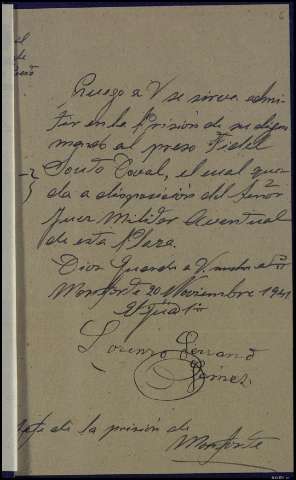 Ruego a V se sirva admi-
tir en la Prisión de su digno
mando al preso Fidel
Souto Toval, el cual que-
da a disposición del Señor
Juez Militar Eventual
de esta Plaza.
Dios Guarde a V. muchos años
Monforte 20 Noviembre 1941
El
Lorenzo Serrano
Gómez
Jefe de la prisión de
Monforte